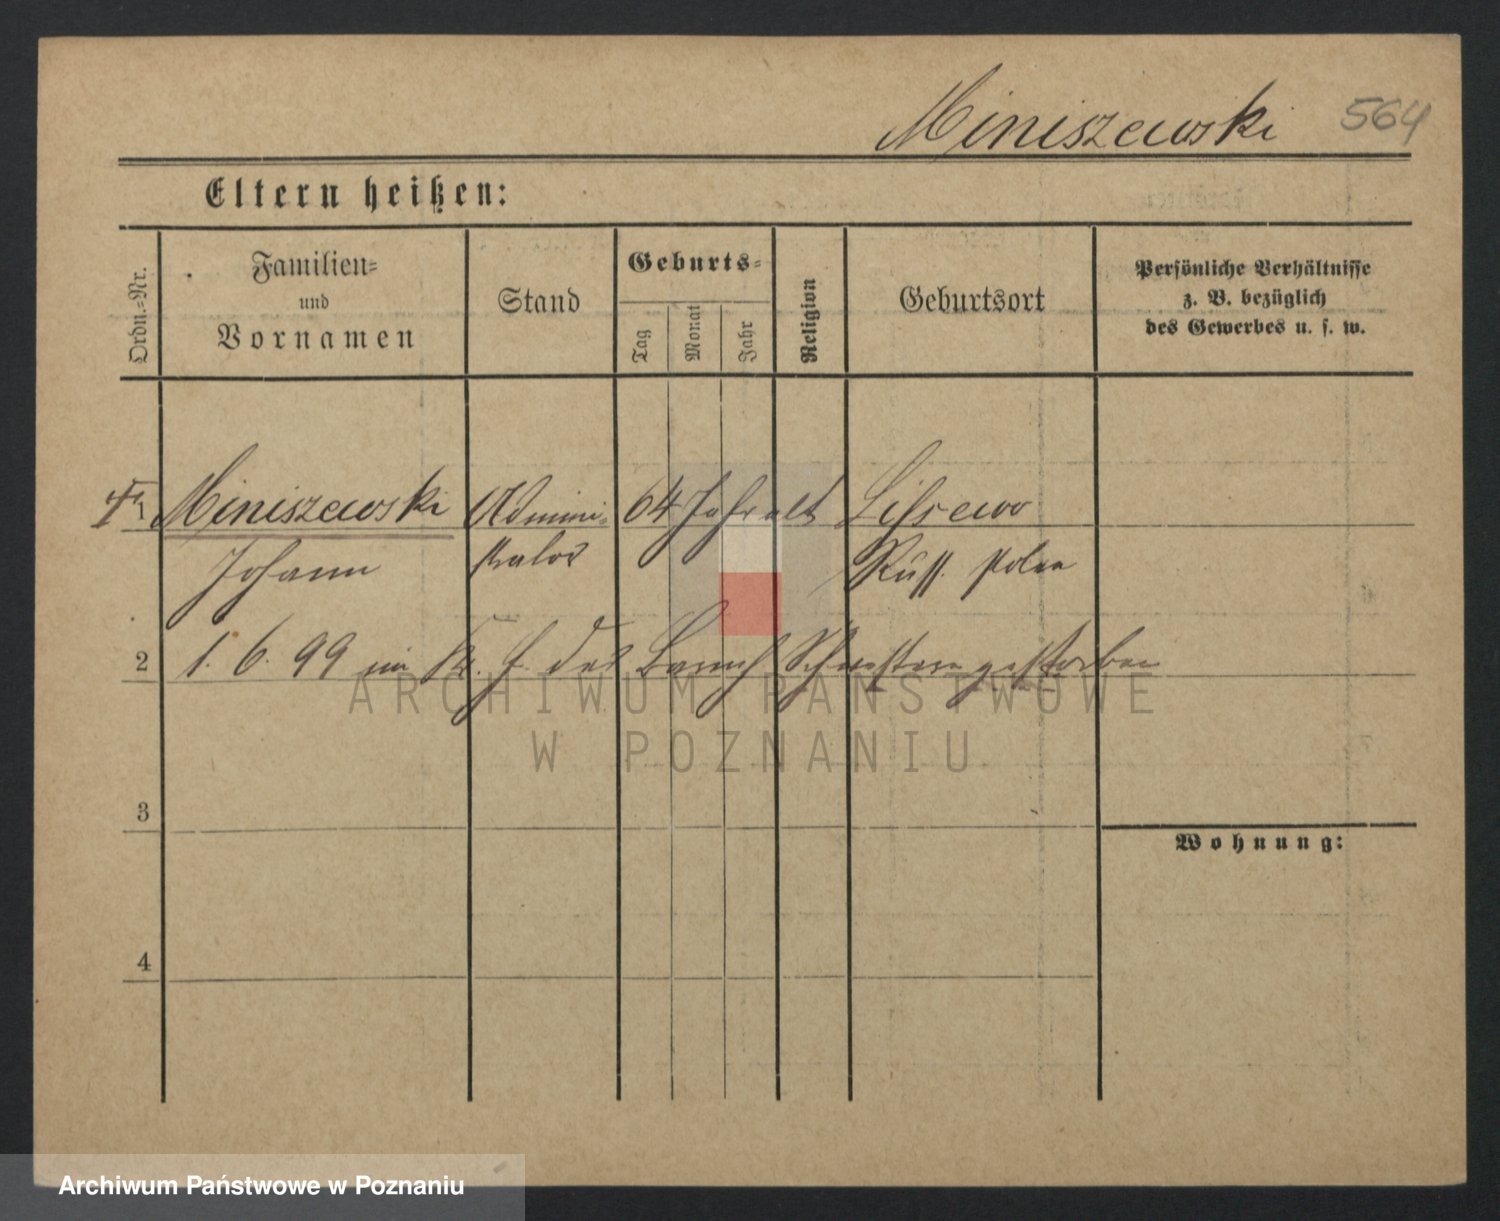 Miniszewski 564
Eltern heißen:
Ordn.=Nr.
Familien=
und
Vornamen
Stand
Geburts=
Tag
Monat
Jahr
Religion
Geburtsort
Persönliche Verhältnisse
z. B. bezüglich
des Gewerbes u. s. w.
1 Miniszewski Admini- 64 Jahr alt
Johann strator Russ. Polen
2 1. 6. 99 im Kr. H. der Barmh Schwestern gestorben
ARCHIWUM PAŃSTWOWE
W POZNANIU
3
Wohnung:
4
Archiwum Państwowe w Poznaniu